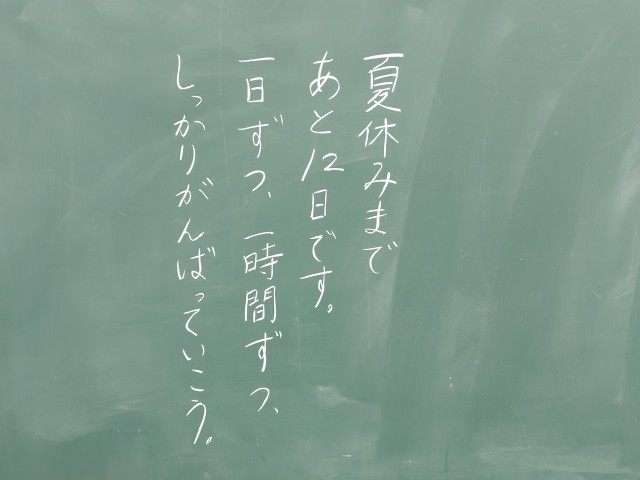 夏休みまで
あと12日です。
一日ずつ、一時間ずつ、
しっかりがんばっていこう。